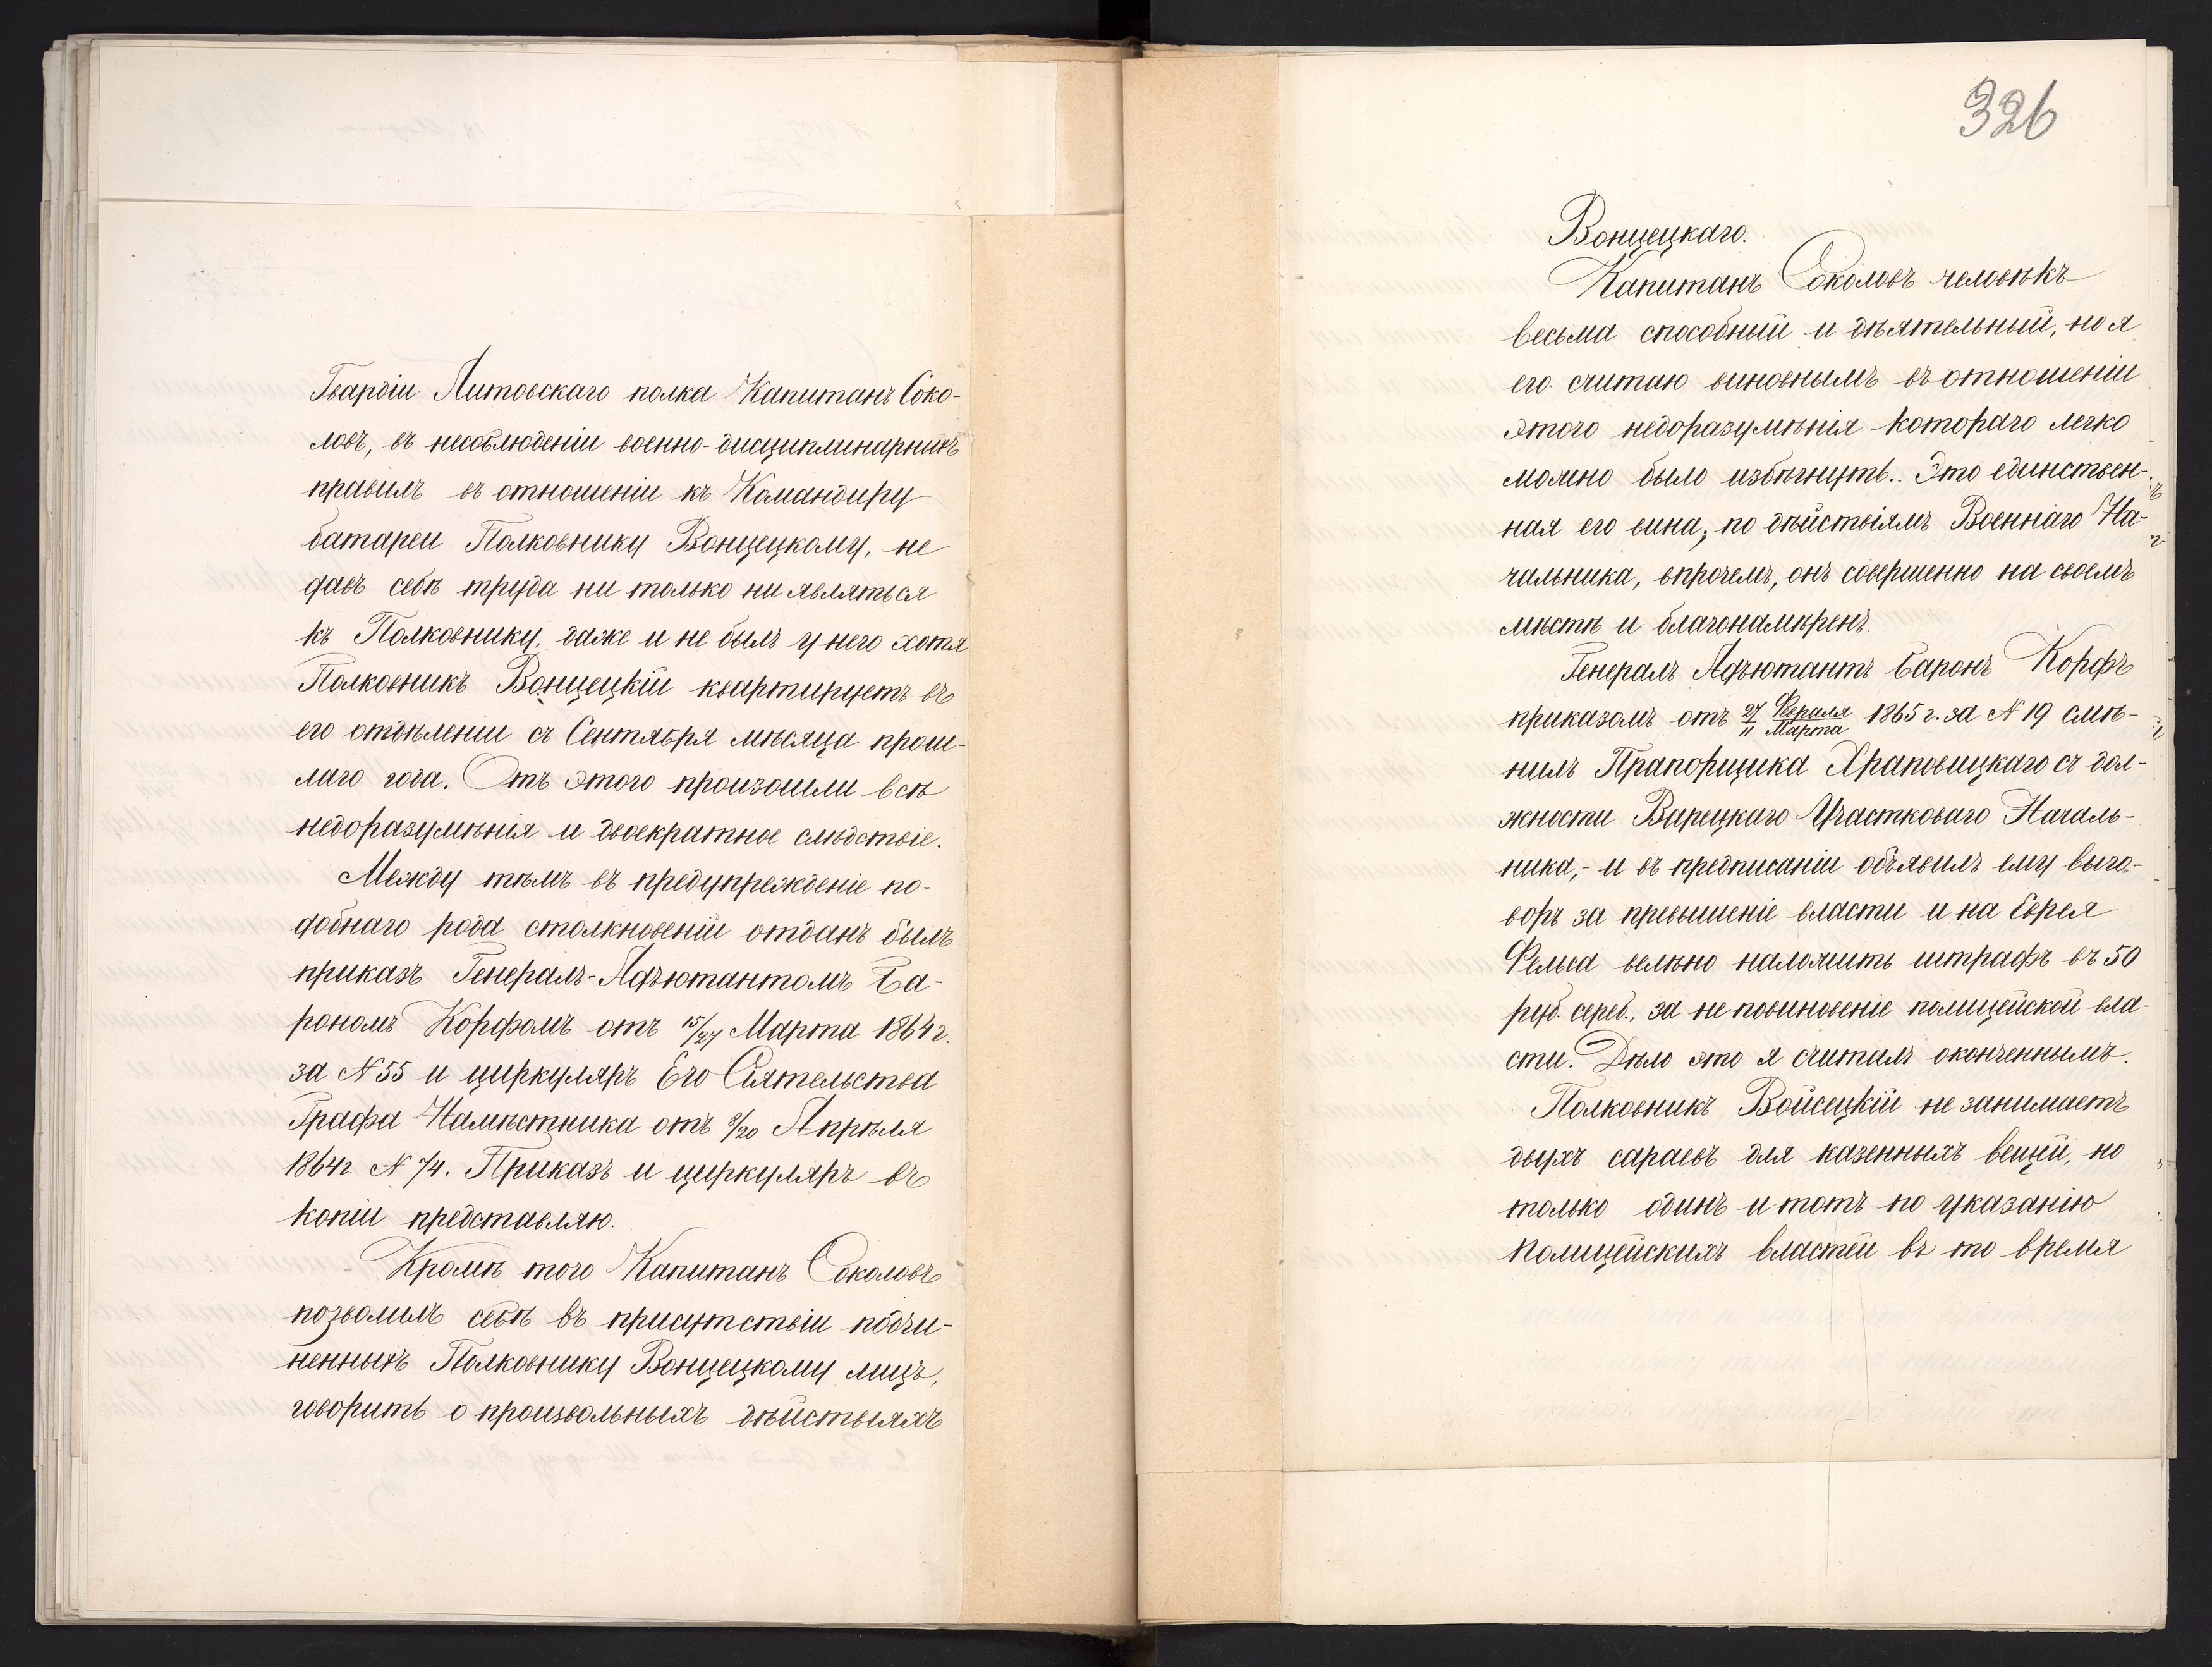 Гвардіи Литовскаго полка Капитанъ Соко-
ловъ, въ несоблюденіи военно-дисциплинарныхъ
правилъ въ отношеніи къ Командиру
батареи Полковнику Вонцецкому, не
давъ себѣ труда ни только ни являться
къ Полковнику, даже и не былъ у него хотя
Полковникъ Вонцецкій квартируетъ въ
его отдѣленіи съ Сентября мѣсяца прош-
лаго года. Отъ этого произошли всѣ
недоразумѣнія и двоекратное слѣдствіе.
Между тѣмъ въ предупрежденіе по-
добнаго рода столкновеній отданъ былъ
приказъ Генералъ-Адъютантомъ Ба-
рономъ Корфомъ отъ 15/27 Марта 1864 г.
за № 55 и циркуляръ Его Сіятельства
Графа Намѣстника отъ 8/20 Апрѣля
1864 г. № 74. Приказъ и циркуляръ въ
копіи представляю.
Кромѣ того Капитанъ Соколовъ
позволилъ себѣ въ присутствіи подчи-
ненныхъ Полковнику Вонцецкому лицъ,
говорить о произвольныхъ дѣйствіяхъ
326
Вонцецкаго.
Капитанъ Соколовъ человѣкъ
весьма способный и дѣятельный, но я
его считаю виновнымъ въ отношеніи
этого недоразумѣнія котораго легко
можно было избѣгнуть. Это единствен-
ная его вина; по дѣйствіямъ Военнаго На-
чальника, впрочемъ, онъ совершенно на своемъ
мѣстѣ и благонамѣренъ.
Генералъ Адъютантъ Баронъ Корфъ
приказомъ отъ 27 Февраля/11 Марта 1865 г. за № 19 смѣ-
нилъ Прапорщика Храповицкаго съ дол-
жности Варецкаго Участковаго Началь-
ника,- и въ предписаніи объявилъ ему выго-
воръ за превышеніе власти и на Еврея
Фельса велѣно наложить штрафъ въ 50
руб. сереб., за не повиновеніе полицейской вла-
сти. Дѣло это я считалъ оконченнымъ.
Полковникъ Войсецкій не занимаетъ
двухъ сараевъ для казенныхъ вещей, но
только одинъ и тотъ по указанію
полицейскихъ властей въ то время